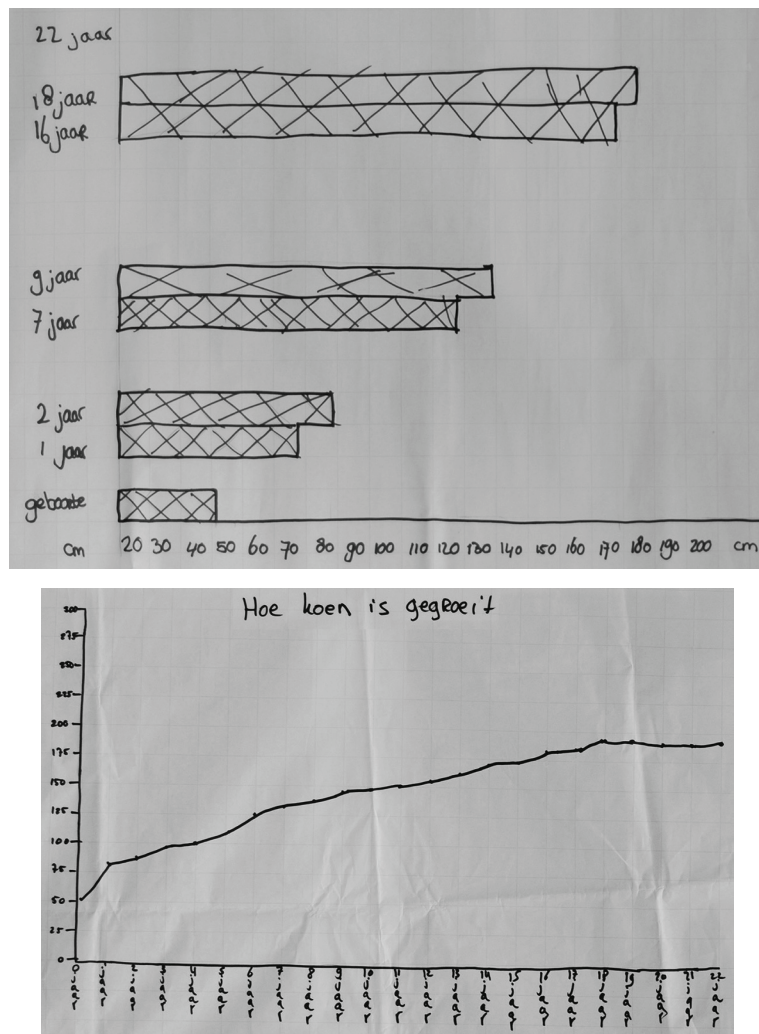 22 jaar
18 jaar
16 jaar
9 jaar
7 jaar
2 jaar
1 jaar
geboorte
cm 20 30 40 50 60 70 80 90 100 110 120 130 140 150 160 170 180 190 200 cm
Hoe koen is gegroeit
300
275
250
225
200
175
150
125
100
75
50
25
0
0 jaar 1 jaar 2 jaar 3 jaar 4 jaar 5 jaar 6 jaar 7 jaar 8 jaar 9 jaar 10 jaar 11 jaar 12 jaar 13 jaar 14 jaar 15 jaar 16 jaar 17 jaar 18 jaar 19 jaar 20 jaar 21 jaar 22 jaar